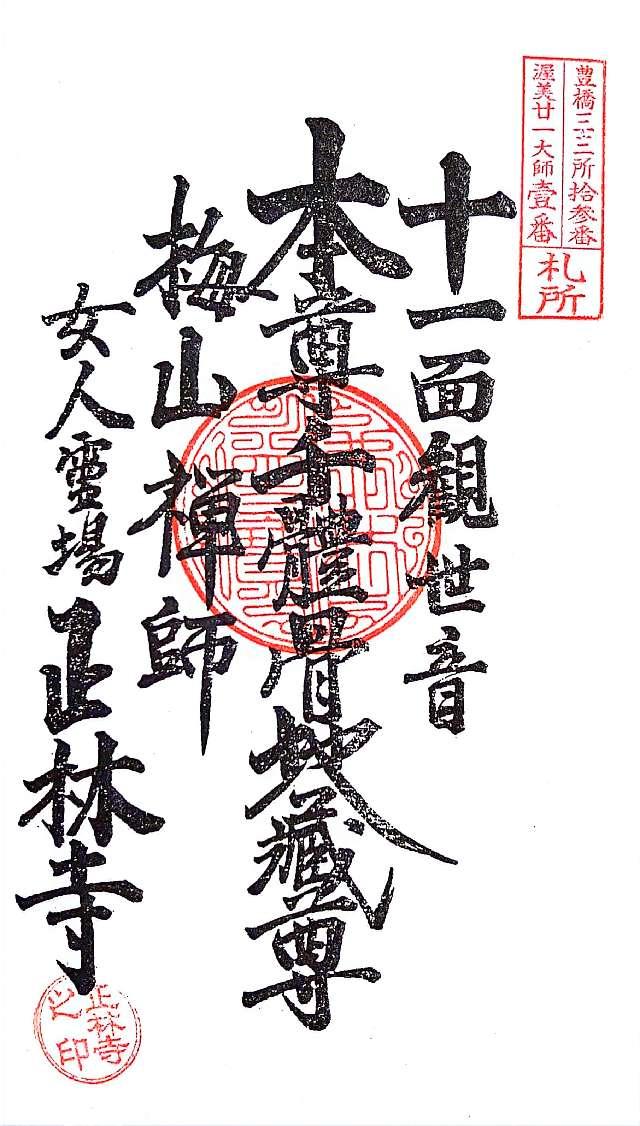 豊橋三十三所拾参番
渥美廿一大師壹番
札所
十一面観世音
本尊千體骨地藏尊
梅山禅師
女人靈場正林寺
正林寺
之印